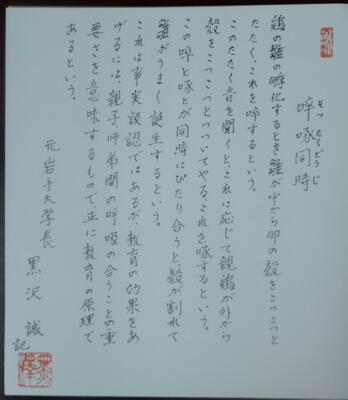 啐啄同時
そったくどうじ
鶏の雛の孵化するとき雛が中から卵の殻をこつこつと
たたく、これを啐するという。
このたたく音を聞くと、これに応じて親鶏が外から
殻をこつこつとつついてやる、これを啄するという。
この啐と啄とが同時にぴたり合うと、殻が割れて
雛がうまく誕生するという。
これは事実誤認ではあるが、教育の効果をあ
げるには、親子、師弟間の呼吸の合うことの重
要さを意味するもので、正に教育の原理で
あるという。
元岩手大學長 黒沢誠
記